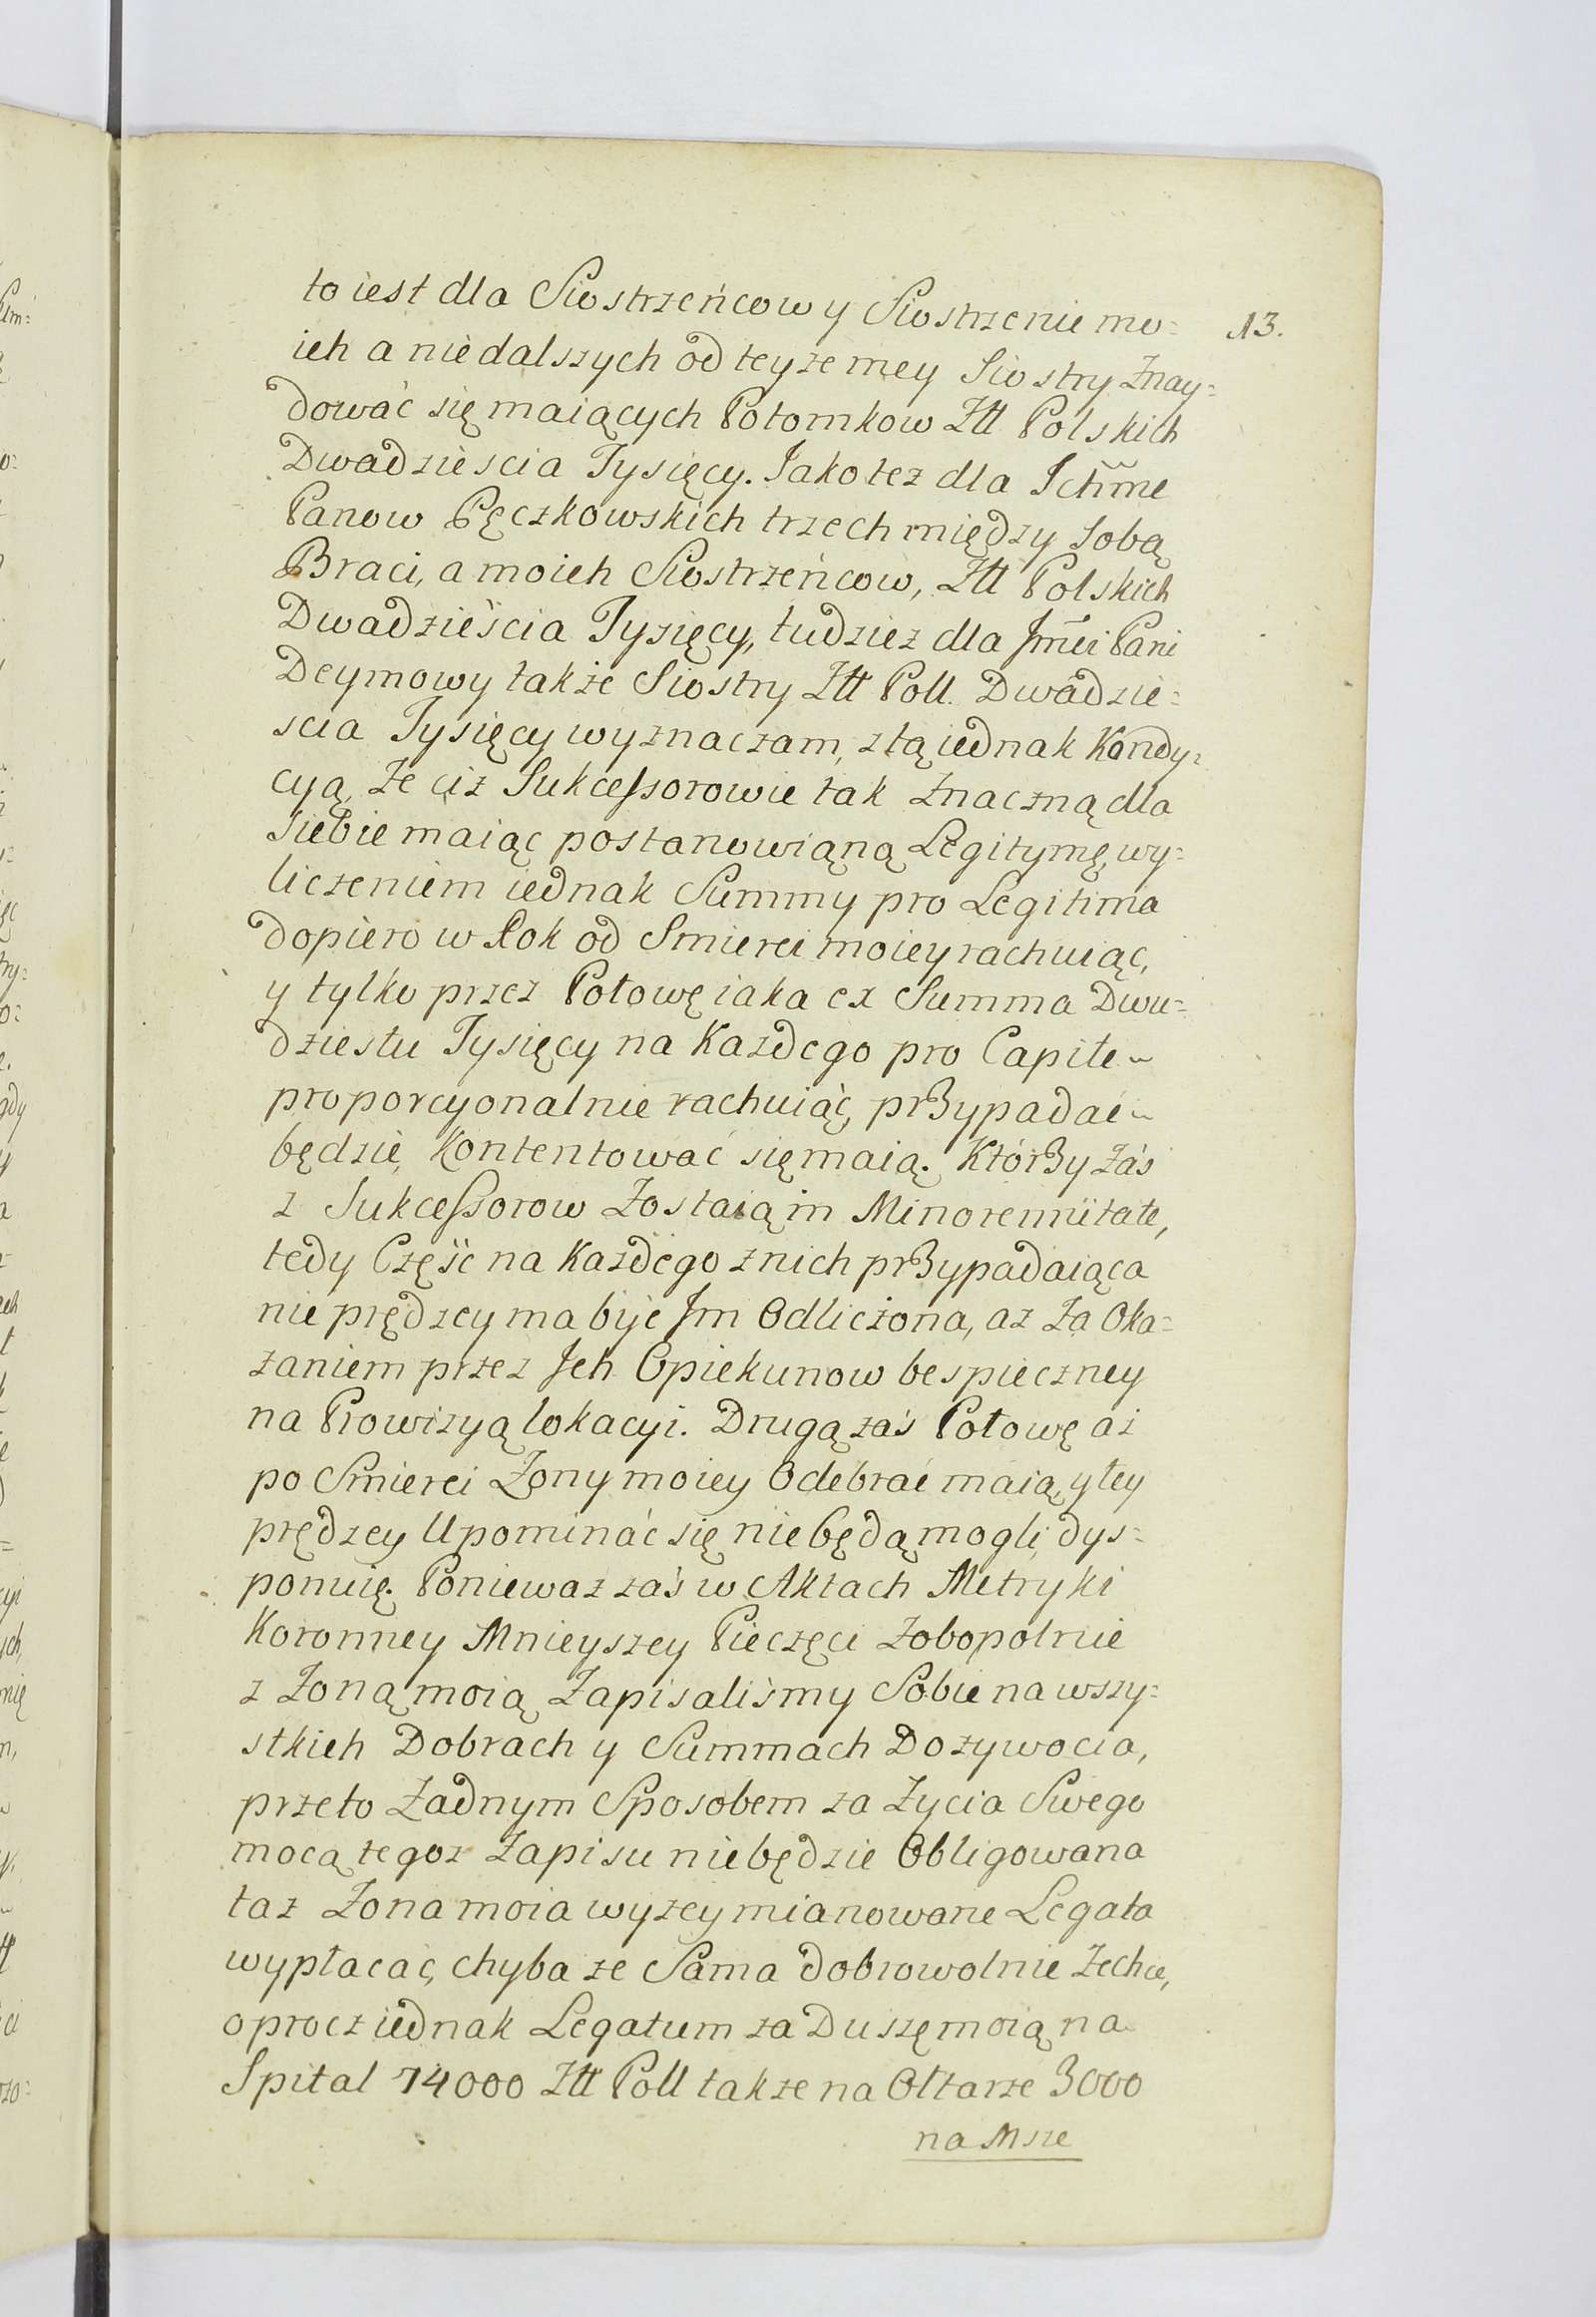 to iest dla Siostrzeńcow y Siostrzenie mo=
13.
ich a nie dalszych od teyze mey Siostry Znay=
dować się maiących Potomkow Ztt Polskich
Dwadziescia Tysięcy. Jako tez dla Ichme
Panow Pęczkowskich trzech między Sobą
Braci, a moich Siostrzeńcow, Ztt Polskich
Dwadzieścia Tysięcy, tudziez dla Jmei Pani
Deymowy także Siostry Ztt Poll. Dwadzie=
scia Tysięcy wyznaczam, z tą iednak Kondy=
cyą, że ciż Sukcessorowie tak znaczną dla
Siebie maiąc postanowiąną Legitymę, wy=
liczeniem iednak Summy pro Legitima
dopiero w Rok od Smierci moiey rachuiąc,
y tylko przez Połowę iaka ex Summa Dwu=
dziestu Tysięcy na Każdego pro Capite
proporcyonalnie rachuiąc, przypadać
będzie, Kontentować się maią. Którzy zaś
z Sukcessorow Zostaią in Minorennitate,
tedy Część na Każdego z nich przypadaiąca
nie prędzey ma być Jm Odliczona, aż za Oka=
zaniem przez Jch Opiekunow bespieczney
na Prowizyą lokacyi. Drugą zaś Połowę aż
po Smierci Żony moiey Odebrać maią, y tey
prędzey Upominać się nie będą mogli, dys=
ponuię. Ponieważ zaś w Aktach Metryki
Koronney Mnieyszey Pieczęci Zobopolnie
z Żoną moią Zapisaliśmy Sobie na wszy=
stkich Dobrach y Summach Dożywocia,
przeto Żadnym Sposobem za Życia Swego
mocą tegoz Zapisu niebędzie Obligowana
taż Żona moia wyżey mianowane Legata
wypłacać, chyba że Sama dobrowolnie Zechce,
oprocz iednak Legatum za Duszę moią na
Spital 14000 Ztt Poll także na Ołtarze 3000
na Msze